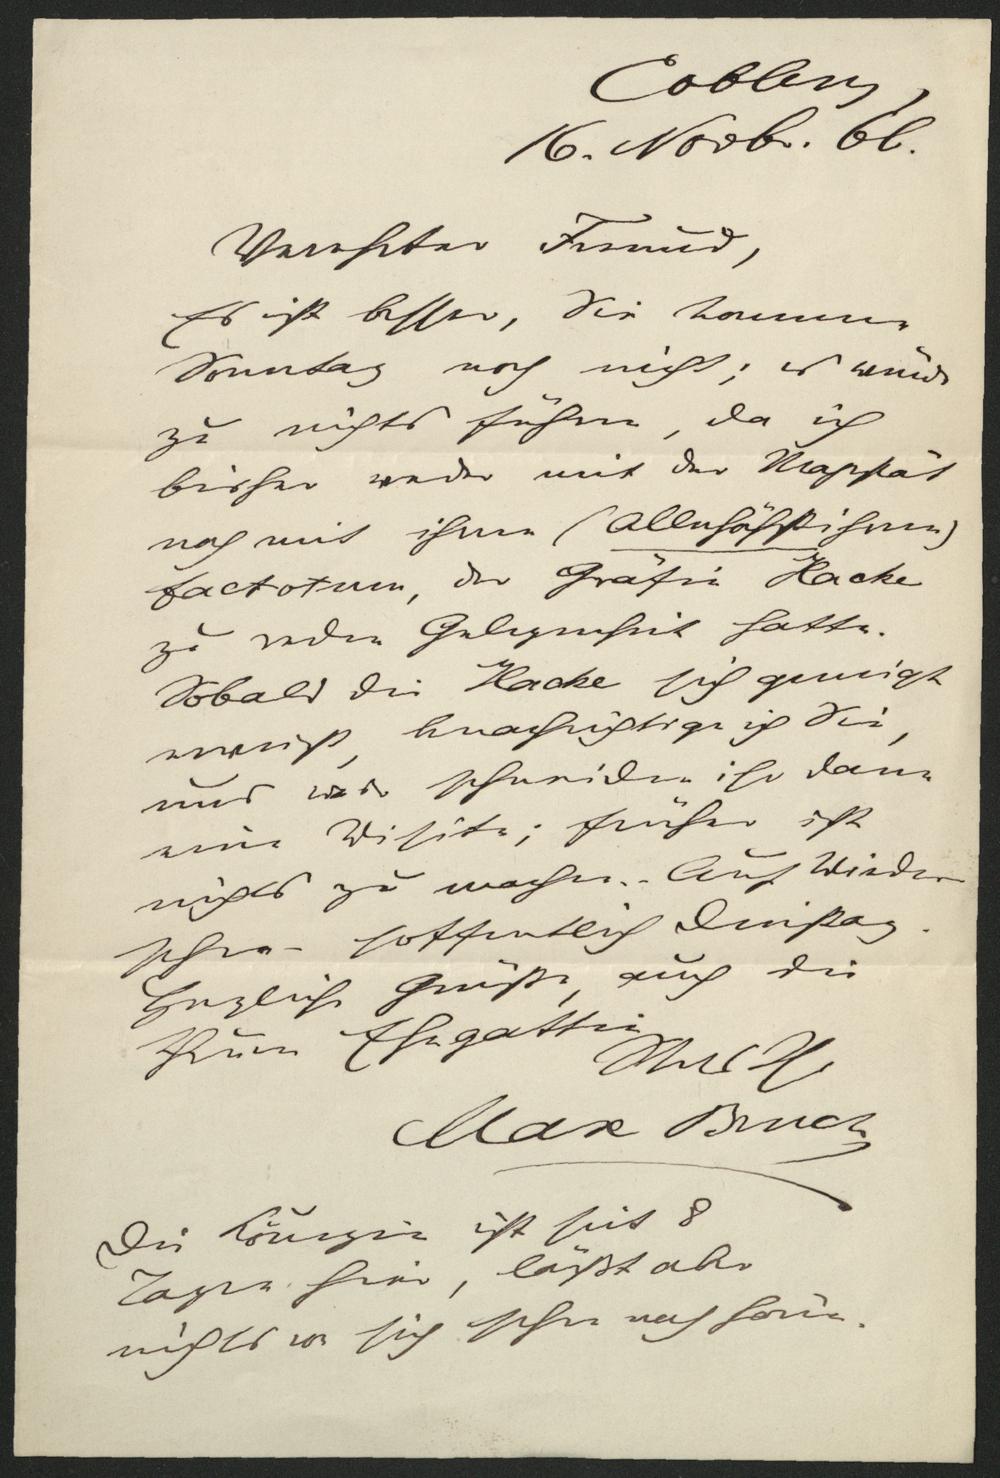 Coblenz,
16. Novbr. 66.
Verehrter Freund,
Es ist besser, Sie kommen
Sonntag noch nicht; es würde
zu nichts führen, da ich
bisher weder mit der Majestät
noch mit ihrem (Allerhöchstihrem)
factotum, der Gräfin Hacke
zu reden Gelegenheit hatte.
Sobald die Hacke sich geneigt
erweist, benachrichtige ich Sie,
und wir schneiden ihr dann
eine Visite; früher ist
nichts zu machen. - Auf Wieder
sehen hoffentlich Dienstag.
Herzliche Grüße, auch die
Ehegattin
Max Bruch
Die Königin ist seit 8
Tagen hier, läßt aber
nichts von sich sehen noch hören.